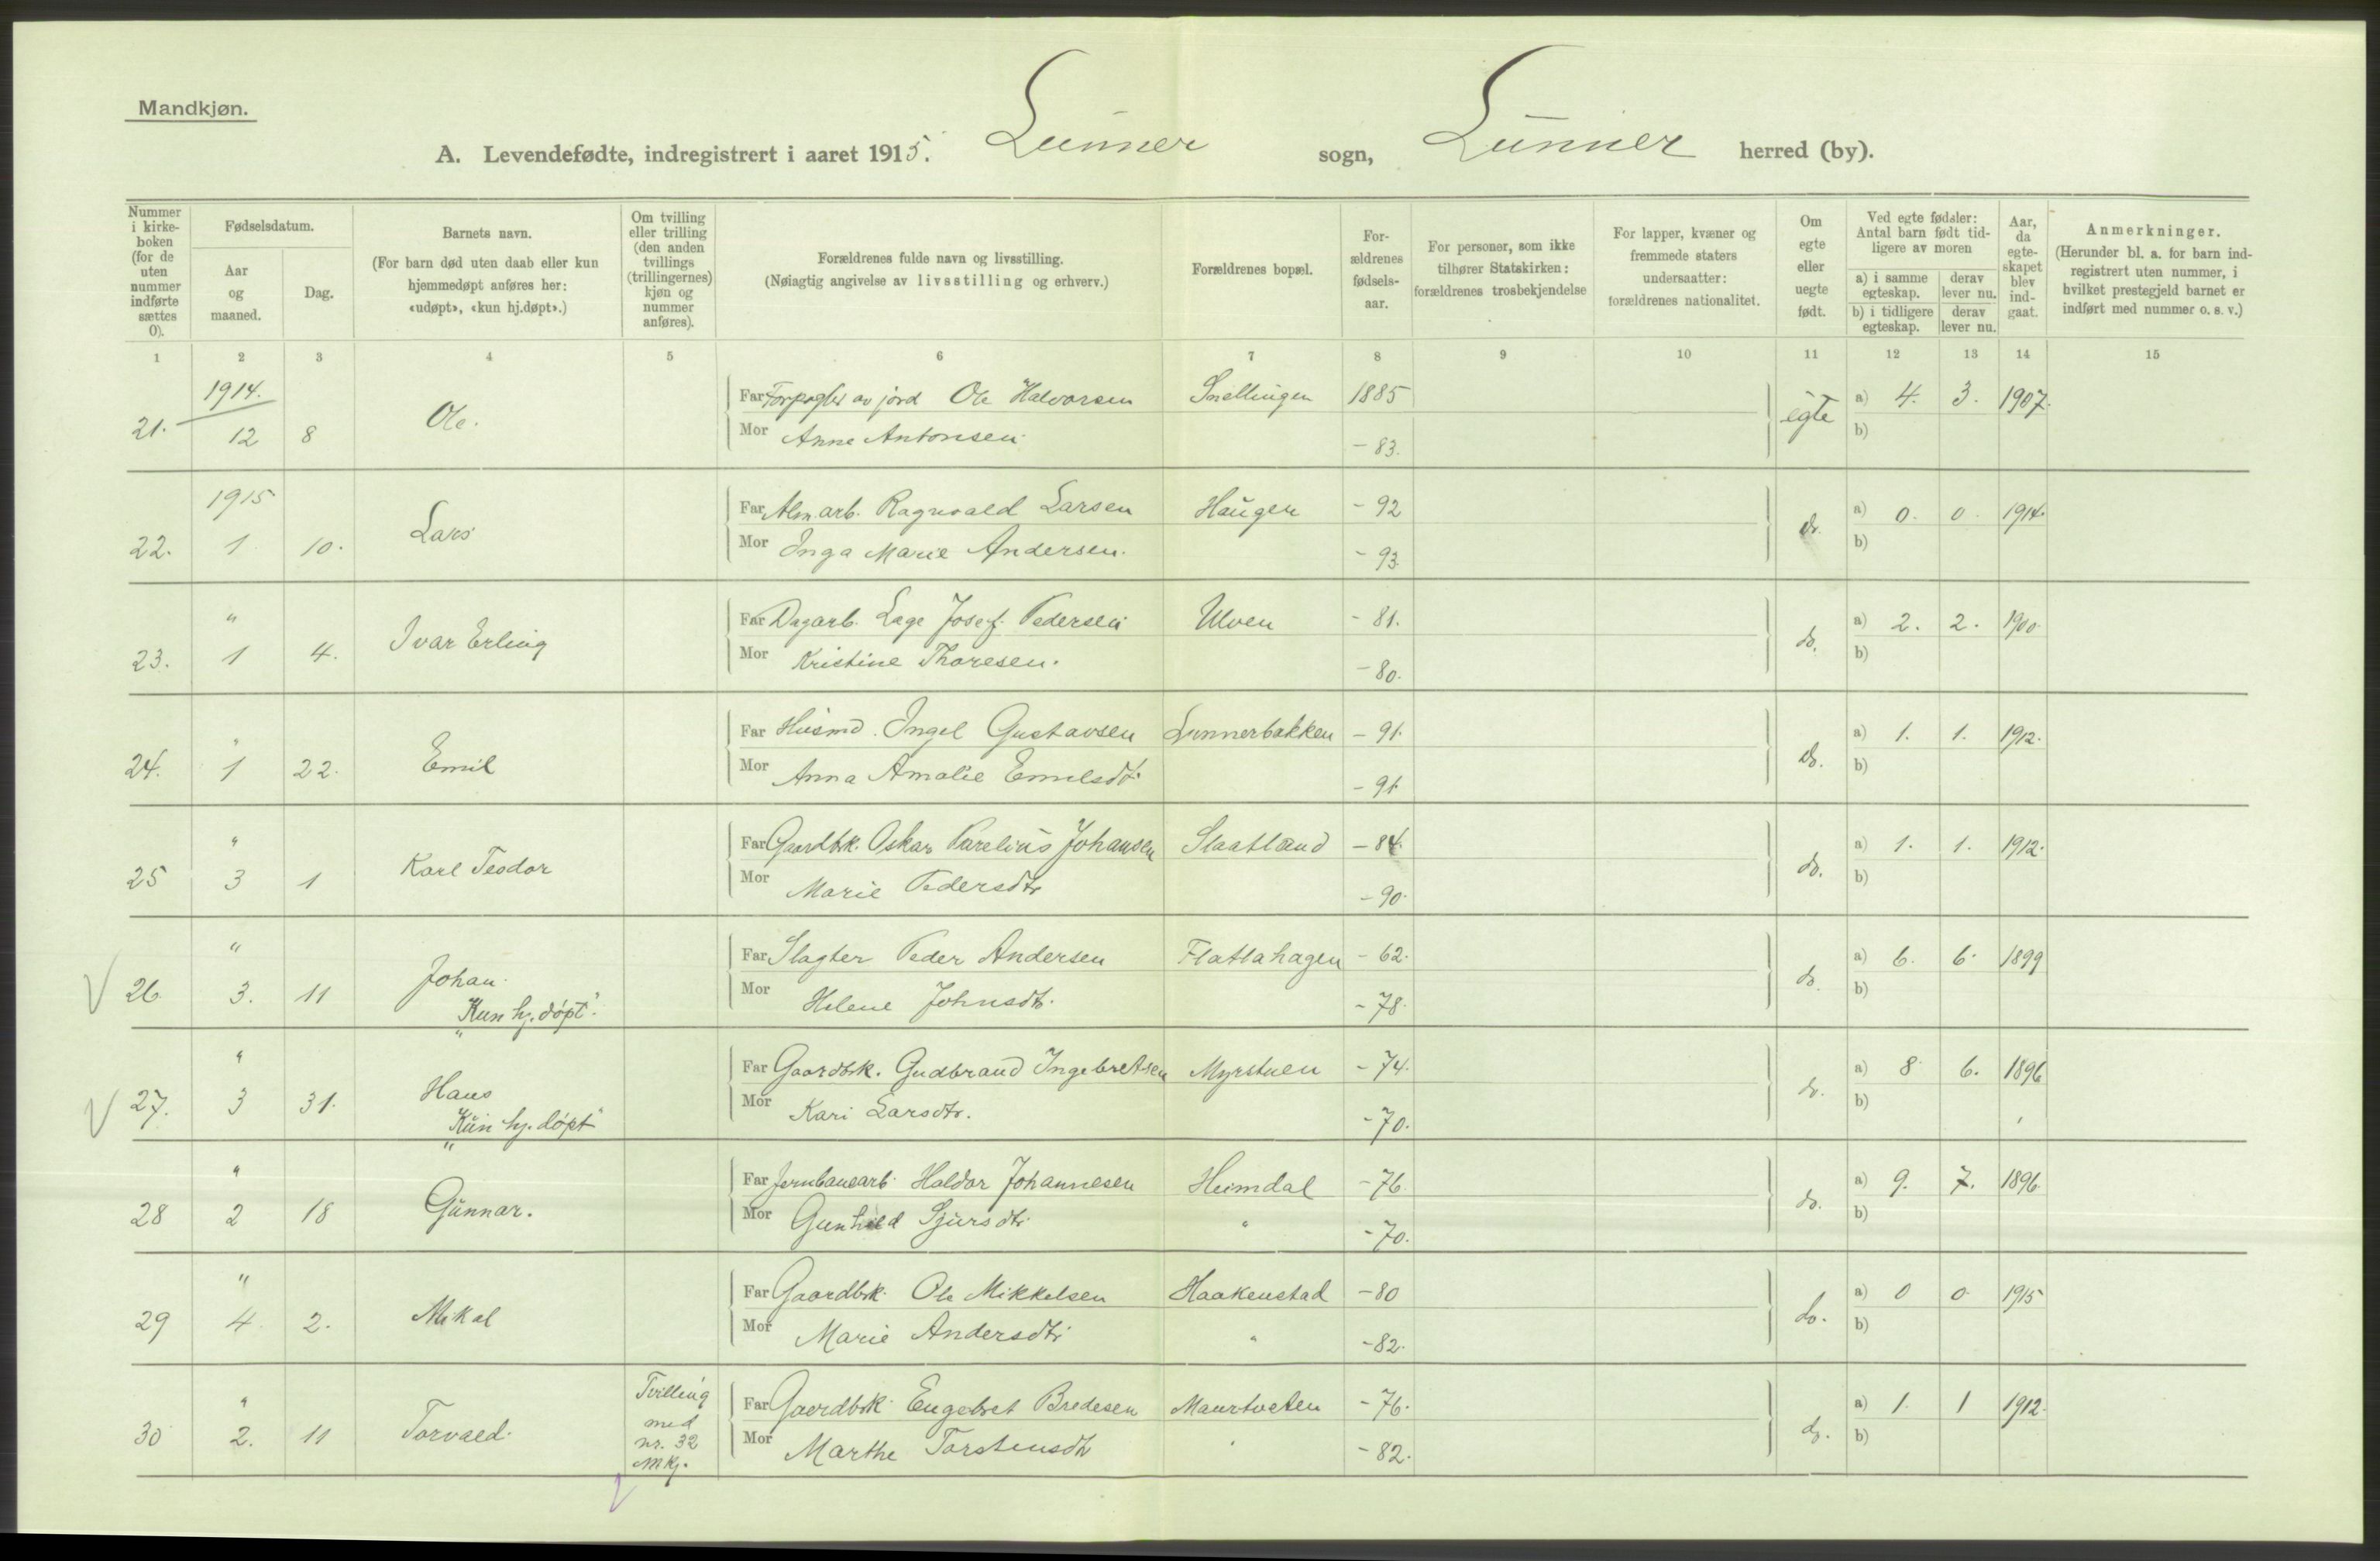 Mandkjøn.
A. Levendefødte, indregistrert i aaret 1915. Lunner sogn, Lunner herred (by).
Nummer i kirke-boken (for de uten nummer indførte sættes 0).
Fødselsdatum.
Aar og maaned.
Dag.
Barnets navn.
(For barn død uten daab eller kun hjemmedøpt anføres her: «udøpt», «kun hj.døpt».)
Om tvilling eller trilling (den anden tvillings (trillingernes) kjøn og nummer anføres).
Forældrenes fulde navn og livsstilling.
(Nøiagtig angivelse av livsstilling og erhverv.)
Forældrenes bopæl.
For-ældrenes fødsels-aar.
For personer, som ikke tilhører Statskirken: forældrenes trosbekjendelse
For lapper, kvæner og fremmede staters undersaatter: forældrenes nationalitet.
Om egte eller uegte født.
Ved egte fødsler: Antal barn født tid-ligere av moren
a) i samme egteskap.
derav lever nu.
b) i tidligere egteskap.
derav lever nu.
Aar, da egte-skapet blev ind-gaat.
Anmerkninger.
(Herunder bl. a. for barn ind-registrert uten nummer, i hvilket prestegjeld barnet er indført med nummer o. s. v.)
1 2 3 4 5 6 7 8 9 10 11 12 13 14 15
1914.
21. 12 8 Ole.
Far Forpagter av jord Ole Halvorsen Snellingen 1885 egte a) 4. 3. 1907.
Mor Anne Antonsen. - 83. b)
1915
22. 1 10. Lars
Far Alm. arb. Ragnvald Larsen Haugen - 92 do. a) 0. 0. 1914.
Mor Inga Marie Andersen. - 93. b)
"
23. 1 4. Ivar Erling
Far Dagarb. Lage Josef. Pedersen Ulven - 81. do. a) 2. 2. 1900.
Mor Kristine Thoresen. - 80. b)
"
24. 1 22. Emil
Far Husmd. Ingel Gustavsen Lunnerbakken - 91. do. a) 1. 1. 1912.
Mor Anna Amalie Emilsdt. - 91 b)
"
25 3 1 Karl Teodor
Far Gaardbk. Oskar Parelius Johansen Slaatland - 84. do. a) 1. 1. 1912.
Mor Marie Pedersdtr - 90. b)
"
V 26 3. 11 Johan.
"Kun hj. døpt".
Far Slagter Peder Andersen Flatlahagen - 62. do. a) 6. 6. 1899
Mor Helene Johnsdtr. - 78. b)
"
V 27. 3 31. Hans
"Kun hj. døpt"
Far Gaardbk. Gudbrand Ingebretsen Myrstuen - 74. do. a) 8 6. 1896
Mor Kari Larsdtr. - 70. b)
"
28 2 18 Gunnar.
Far Jernbanearb. Haldor Johannesen Heimdal - 76. do. a) 9. 7. 1896.
Mor Gunhild Sjursdtr. " - 70. b)
"
29 4. 2. Mikal
Far Gaardbk. Ole Mikkelsen Haakenstad - 80 do. a) 0 0. 1915
Mor Marie Andersdtr " - 82. b)
"
30 2. 11 Torvald.
Tvilling
med
nr. 32
Mkj.
Far Gaardbk. Engebret Bredesen Maurtveten - 76. do. a) 1. 1 1912.
Mor Marthe Torstensdtr " - 82. b)